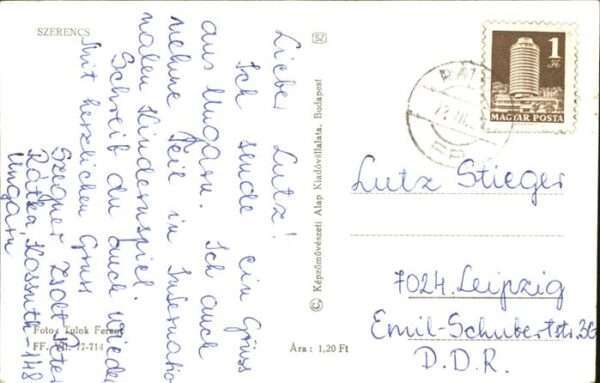 SZERENCS
Lieber Lutz!
Ich sende ein Grüss
aus Ungarn. Ich auch
nehme Teil in Internatio
nalen Kinderspiel.
Schreib du auch wieder
Mit herzlichen Grüss
Zsolt Péter
Rátka, Kossuth-148
Ungarn
Foto: Tulok Ferenc
FF. 77-714
Ára: 1,20 Ft
© Képzőművészeti Alap Kiadóvállalata, Budapest
1 Ft
MAGYAR POSTA
Lutz Stieger
7024. Leipzig
Emil-Schubertstr. 36
D.D.R.